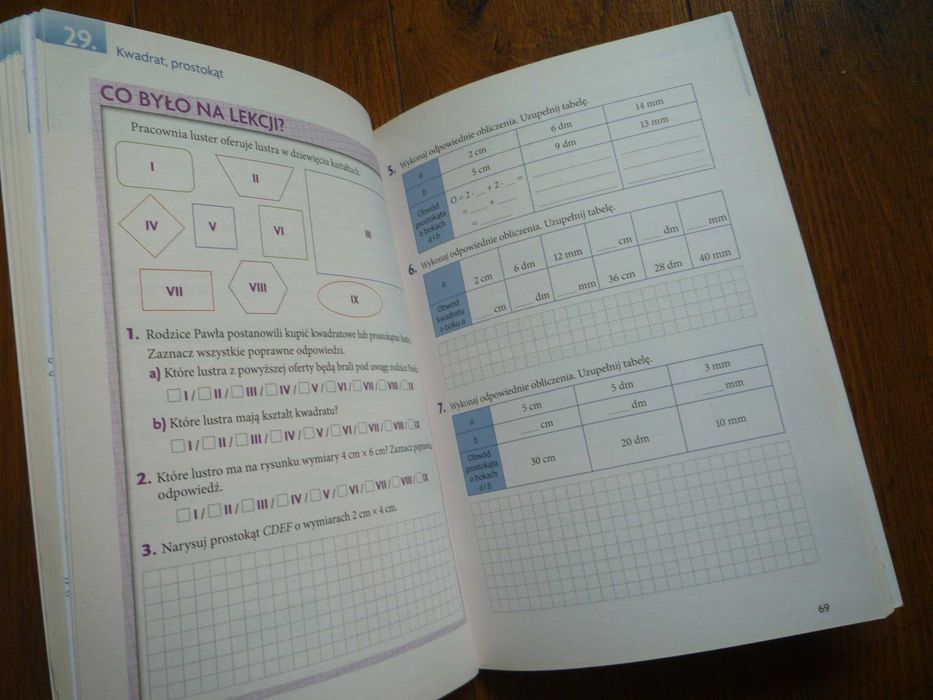 29.
Kwadrat, prostokąt
CO BYŁO NA LEKCJI?
Pracownia luster oferuje lustra w dziewięciu kształtach.
I
II
III
IV
V
VI
VII
VIII
IX
1. Rodzice Pawła postanowili kupić kwadratowe lub prostokątne
Zaznacz wszystkie poprawne odpowiedzi.
a) Które lustra z powyższej oferty będą brali pod uwagę rodzice
□ I / □ II / □ III / □ IV / □ V / □ VI / □ VII / □ VIII / □ IX
b) Które lustra mają kształt kwadratu?
□ I / □ II / □ III / □ IV / □ V / □ VI / □ VII / □ VIII / □ IX
2. Które lustro ma na rysunku wymiary 4 cm × 6 cm? Zaznacz
odpowiedź.
□ I / □ II / □ III / □ IV / □ V / □ VI / □ VII / □ VIII / □ IX
3. Narysuj prostokąt CDEF o wymiarach 2 cm × 4 cm.
5. Wykonaj odpowiednie obliczenia. Uzupełnij tabelę.
a 2 cm 6 dm 14 mm
b 5 cm 9 dm 13 mm
Obwód
prostokąta
o bokach
a i b
O = 2 · __ + 2 · __ =
= ____ + ____
= ____
6. Wykonaj odpowiednie obliczenia. Uzupełnij tabelę.
a 2 cm 6 dm 12 mm ___ cm ___ dm ___ mm
Obwód
kwadratu
o boku a
___ cm ___ dm ___ mm 36 cm 28 dm 40 mm
7. Wykonaj odpowiednie obliczenia. Uzupełnij tabelę.
a 5 cm 5 dm 3 mm
b ___ cm ___ dm ___ mm
Obwód
prostokąta
o bokach
a i b
30 cm 20 dm 10 mm
69